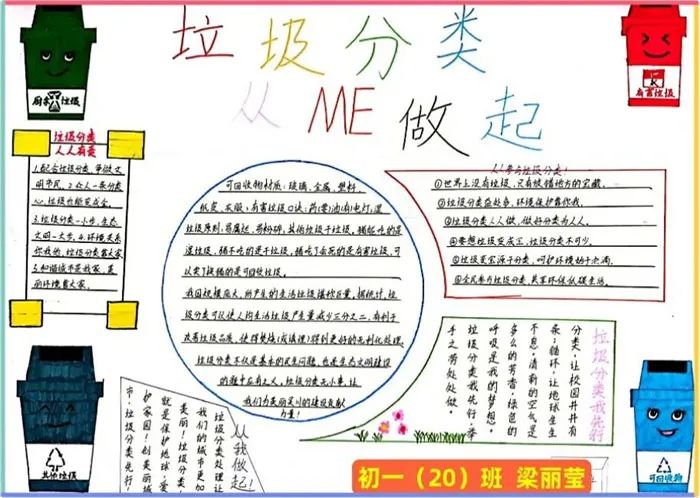 垃圾分类
从ME做起
厨余垃圾
有害垃圾
垃圾分类
人人有责
1.配合垃圾分类,争做文
明市民。2.众人一条分类
心,垃圾也能变成金。
3.垃圾分类一小步,生态
文明一大步。4.环境关系
你我他,垃圾分类靠大家
5.和谐城市是我家,美
丽环境靠大家。
可回收物材质:玻璃、金属、塑料、
纸皮、衣服;有害垃圾口诀:药(要)油(有)电灯;湿
垃圾原则:易腐烂、易粉碎,其他垃圾干垃圾,猪能吃的是
湿垃圾,猪不吃的是干垃圾,猪吃了会死的是有害垃圾,可
以卖了换猪的是可回收垃圾。
我国规模庞大,所产生的生活垃圾堪称巨量,据统计,垃
圾分类可以使人均生活垃圾产生量减少三分之二,有利于
改善垃圾品质,使得焚烧(或填埋)得到更好的无利化处理。
垃圾分类不仅是基本的民生问题,也是生态文明建设
的题中应有之义,垃圾分类无小事,让
我们为美丽深圳的建设贡献
力量!
人人参与垃圾分类!
①世界上没有垃圾,只有放错地方的宝藏。
②垃圾分类益处多,环境保护靠你我。
③垃圾分类人人做,做好分类为人人。
④要想垃圾变成宝,垃圾分类不可少。
⑤垃圾变宝源于分类,呵护环境始于点滴。
⑥全民参与垃圾分类,共享环保低碳生活。
垃圾分类我先行
分类,让校园井井有
条;循环,让地球生生
不息。清新的空气是
多么的芳香,绿色的
呼吸是我的梦想。
垃圾分类我先行,举
手之劳处处做。
从我做起!
垃圾分类处理让
我们的城市更加
美丽!垃圾分类
就是保护地球,爱
护家园!创美丽城
市,垃圾分类先行!
其他垃圾
可回收物
初一(20)班 梁丽莹